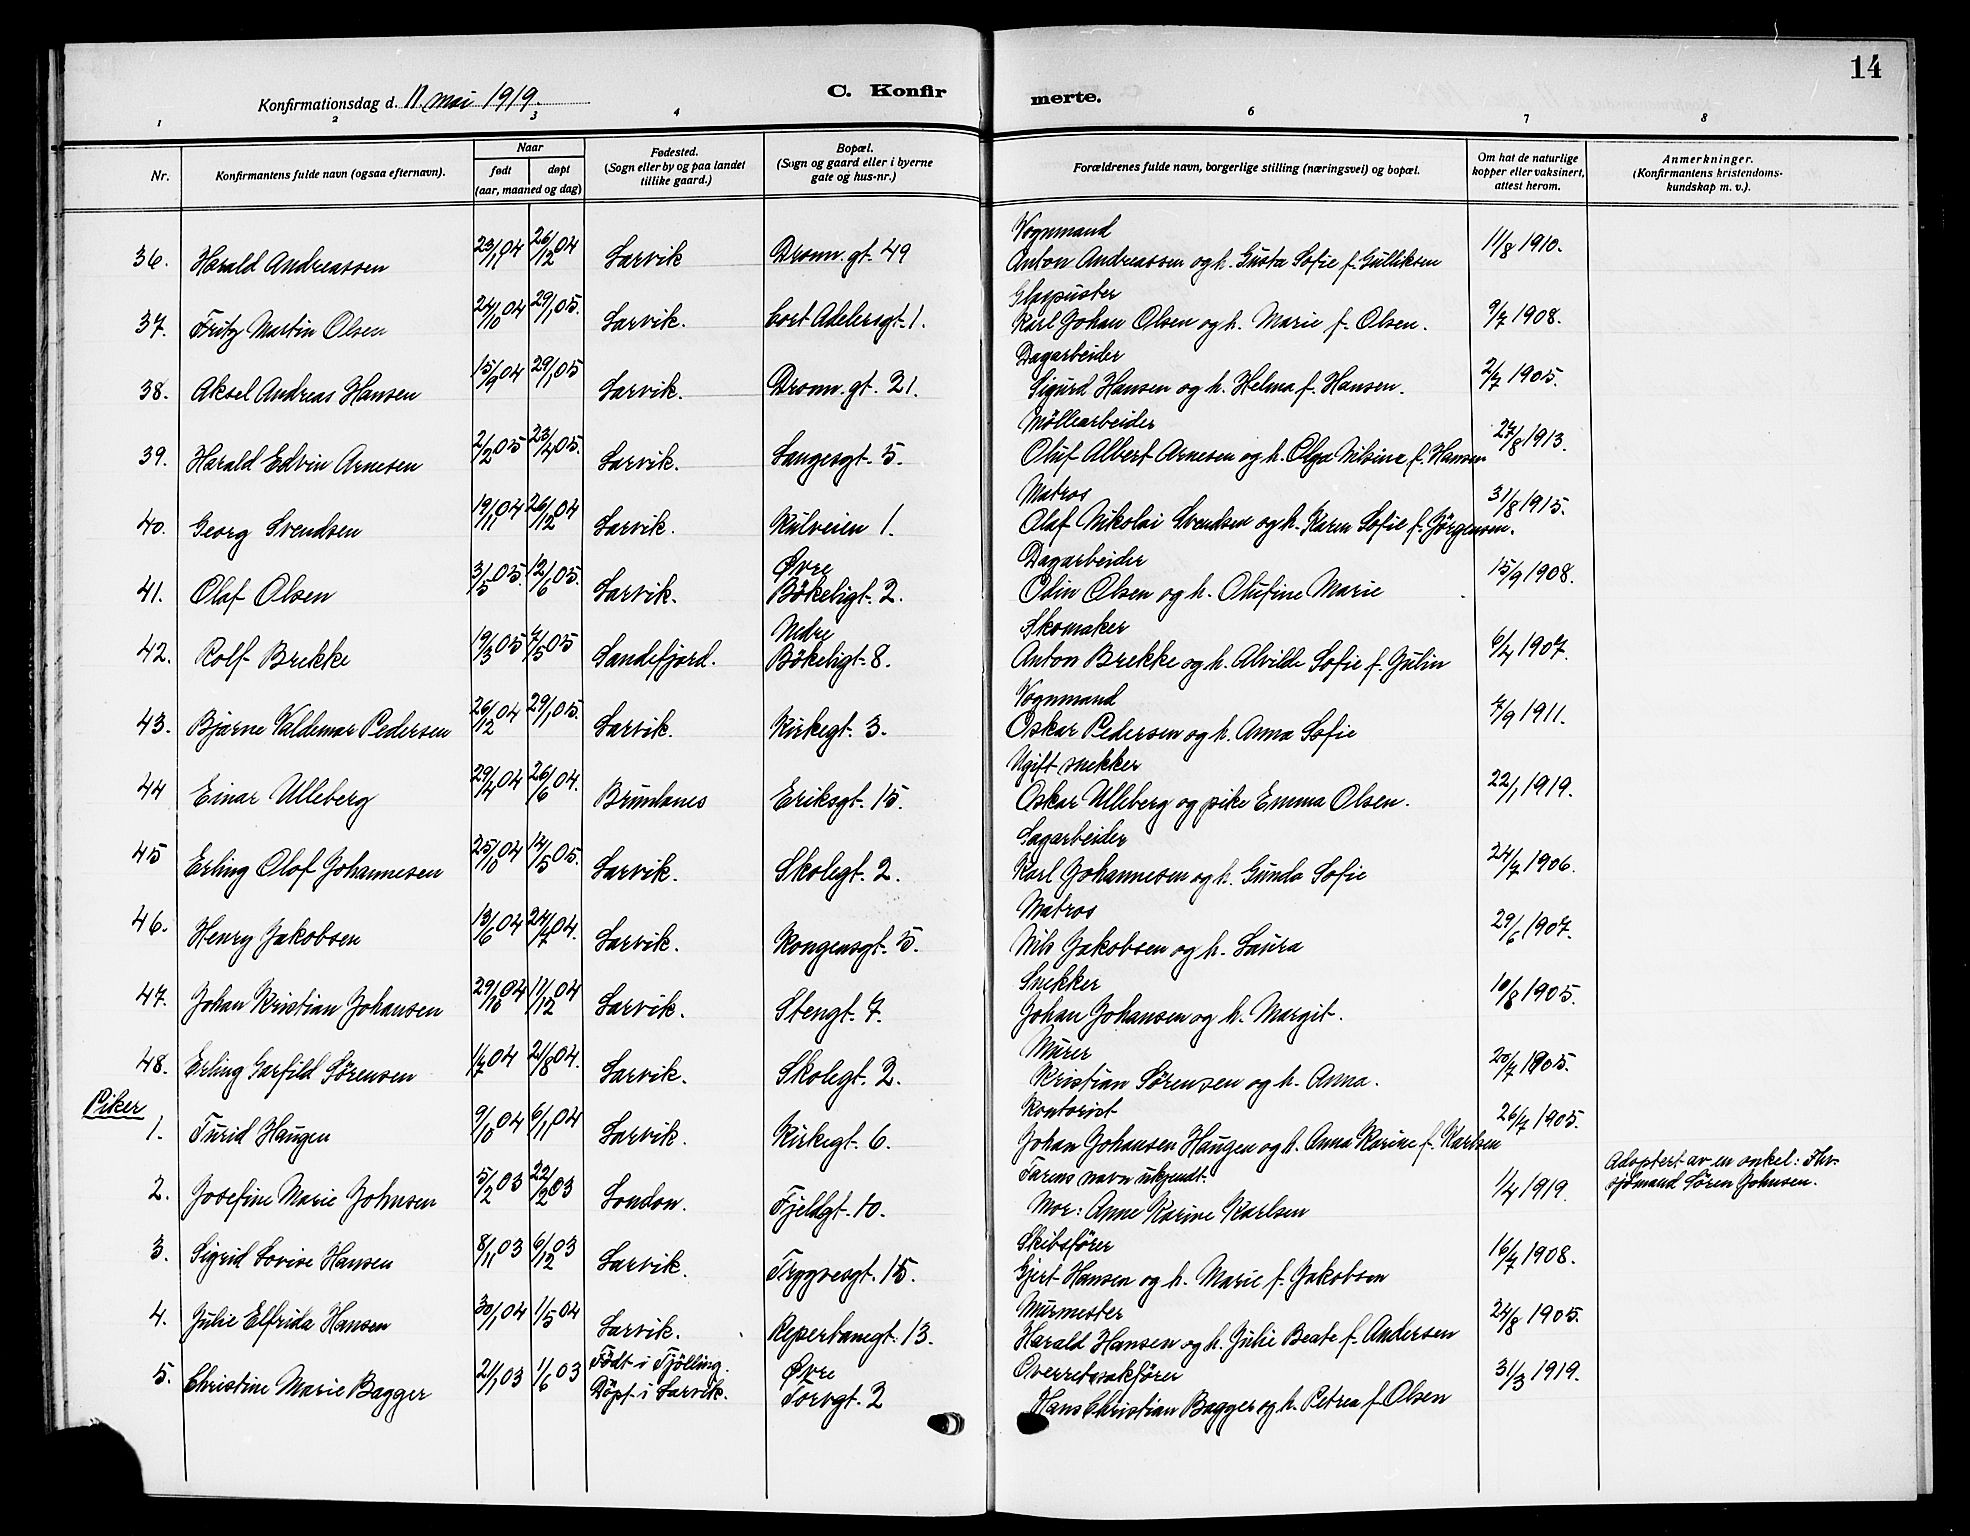 14
Konfirmationsdag d. 11. mai 1919.
C. Konfirmerte.
1 2 3 4 6 7 8
Nr.
Konfirmantens fulde navn (ogsaa efternavn).
Naar
født døpt
(aar, maaned og dag)
Fødested.
(Sogn eller by og paa landet
tillike gaard.)
Bopæl.
(Sogn og gaard eller i byerne
gate og hus-nr.)
Forældrenes fulde navn, borgerlige stilling (næringsvei) og bopæl.
Om hat de naturlige
kopper eller vaksinert,
attest herom.
Anmerkninger.
(Konfirmantens kristendoms-
kundskap m. v.).
Vognmand
36. Harald Andreassen 23/11 04 26/12 04 Larvik Dronn. gt. 49 Anton Andreassen og h. Gusta Sofie f. Gulliksen 11/8 1910.
Glaspuster
37. Fritz Martin Olsen 24/10 04 29/1 05. Larvik. Cort Adelersgt. 1. Karl Johan Olsen og h. Marie f. Olsen. 9/7 1908.
Dagarbeider
38. Aksel Andreas Hansen 15/9 04 29/1 05 Larvik. Dronn. gt. 21. Sigurd Hansen og h. Helma f. Hansen. 2/7 1905.
Möllearbeider
39. Harald Edvin Arnesen 2/2 05 23/4 05. Larvik. Langesgt. 5. Oluf Albert Arnesen og h. Olga Nilsine f. Hansen 27/8 1913.
Matros
40. Georg Svendsen 19/11 04 26/12 04 Larvik. Kulveien 1. Olaf Nikolai Svendsen og h. Karen Sofie f. Jörgensen. 31/8 1915.
Øvre Dagarbeider
41. Olaf Olsen 3/5 05. 12/6 05. Larvik. Bökeligt. 2. Odin Olsen og h. Olufine Marie 15/9 1908.
Nedre Skomaker
42. Rolf Brekke 19/3 05 7/5 05 Sandefjord. Bökeligt. 8. Anton Brekke og h. Alvilde Sofie f. Julin 6/4 1907.
Vognmand
43. Bjarne Valdemar Pedersen 26/12 04 29/1 05. Larvik. Kirkegt. 3. Oskar Pedersen og h. Anna Sofie 7/9 1911.
Ugift snekker
44 Einar Ulleberg 29/4 04 26/6 04. Brunlanes Eriksgt. 15. Oskar Ulleberg og pike Emma Olsen. 22/1 1919.
Sagarbeider
45 Erling Olaf Johannesen 25/10 04 14/5 05. Larvik. Skolegt. 2. Karl Johannesen og h. Gunda Sofie 24/7 1906.
Matros
46. Henry Jakobsen 13/6 04 24/7 04. Larvik. Kongensgt. 5. Nils Jakobsen og h. Laura 29/6 1907.
Snekker
47. Johan Kristian Johansen 29/10 04 11/12 04 Larvik. Stengt. 7. Johan Johansen og h. Margit. 10/8 1905.
Murer
48. Erling Garfild Sørensen 1/7 04 21/8 04. Larvik. Skolegt. 2. Kristian Sørensen og h. Anna. 20/7 1905.
Piker
Kontorist
1. Turid Haugen 9/10 04 6/11 04 Larvik. Kirkegt. 6. Johan Johansen Haugen og h. Anna Karine f. Karlsen 26/7 1905.
Farens navn ukjendt. Adoptert av en onkel:
2. Josefine Marie Johnsen 5/2 03 22/2 03 London. Fjeldgt. 10. Mor: Anne Karine Karlsen 1/4 1919. sjömand Søren Johnsen.
Skibsfører
3. Sigrid Lovise Hansen 8/11 03 6/12 03 Larvik. Trygvesgt. 15. Gjert Hansen og h. Marie f. Jakobsen 16/7 1908.
Murmester
4. Julie Elfrida Hansen 30/1 04 1/5 04 Larvik. Reperbanegt. 13. Harald Hansen og h. Julie Beate f. Andersen 24/8 1905.
Født i Tjölling. Øvre Overretssakfører
5. Christine Marie Bagger 21/1 03 1/6 03 Döpt i Larvik. Torvgt. 2 Hans Christian Bagger og h. Petrea f. Olsen 31/3 1919.